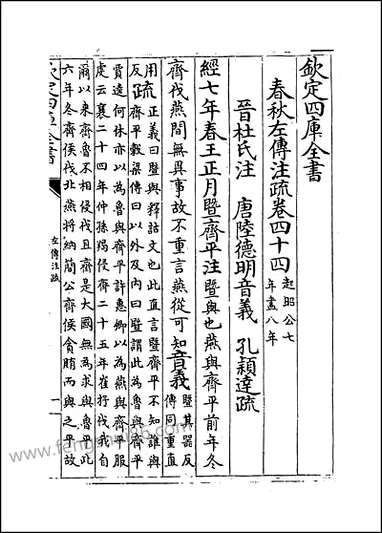 欽定四庫全書
春秋左傳注疏卷四十四 起昭公七
年盡八年
晉杜氏注 唐陸德明音義 孔穎達疏
經七年春王正月暨齊平注暨與也燕與齊平前年冬
齊伐燕間無異事故不重言燕從可知音義 暨其器反
傳同重直
用疏正義曰暨與釋詁文也此直言暨齊平不知誰與
反齊平穀梁傳曰以外及内曰暨謂此為魯與齊平
賈逵何休亦以為魯與齊平許惠卿以為燕與齊平服
虔云襄二十四年仲孫羯侵齊二十五年崔杼伐我自
爾以來齊魯不相侵伐且齊是大國無為求與魯平此
六年冬齊侯伐北燕將納簡公齊侯貪賄而與之平故
欽定四庫全書
左傳注疏
一